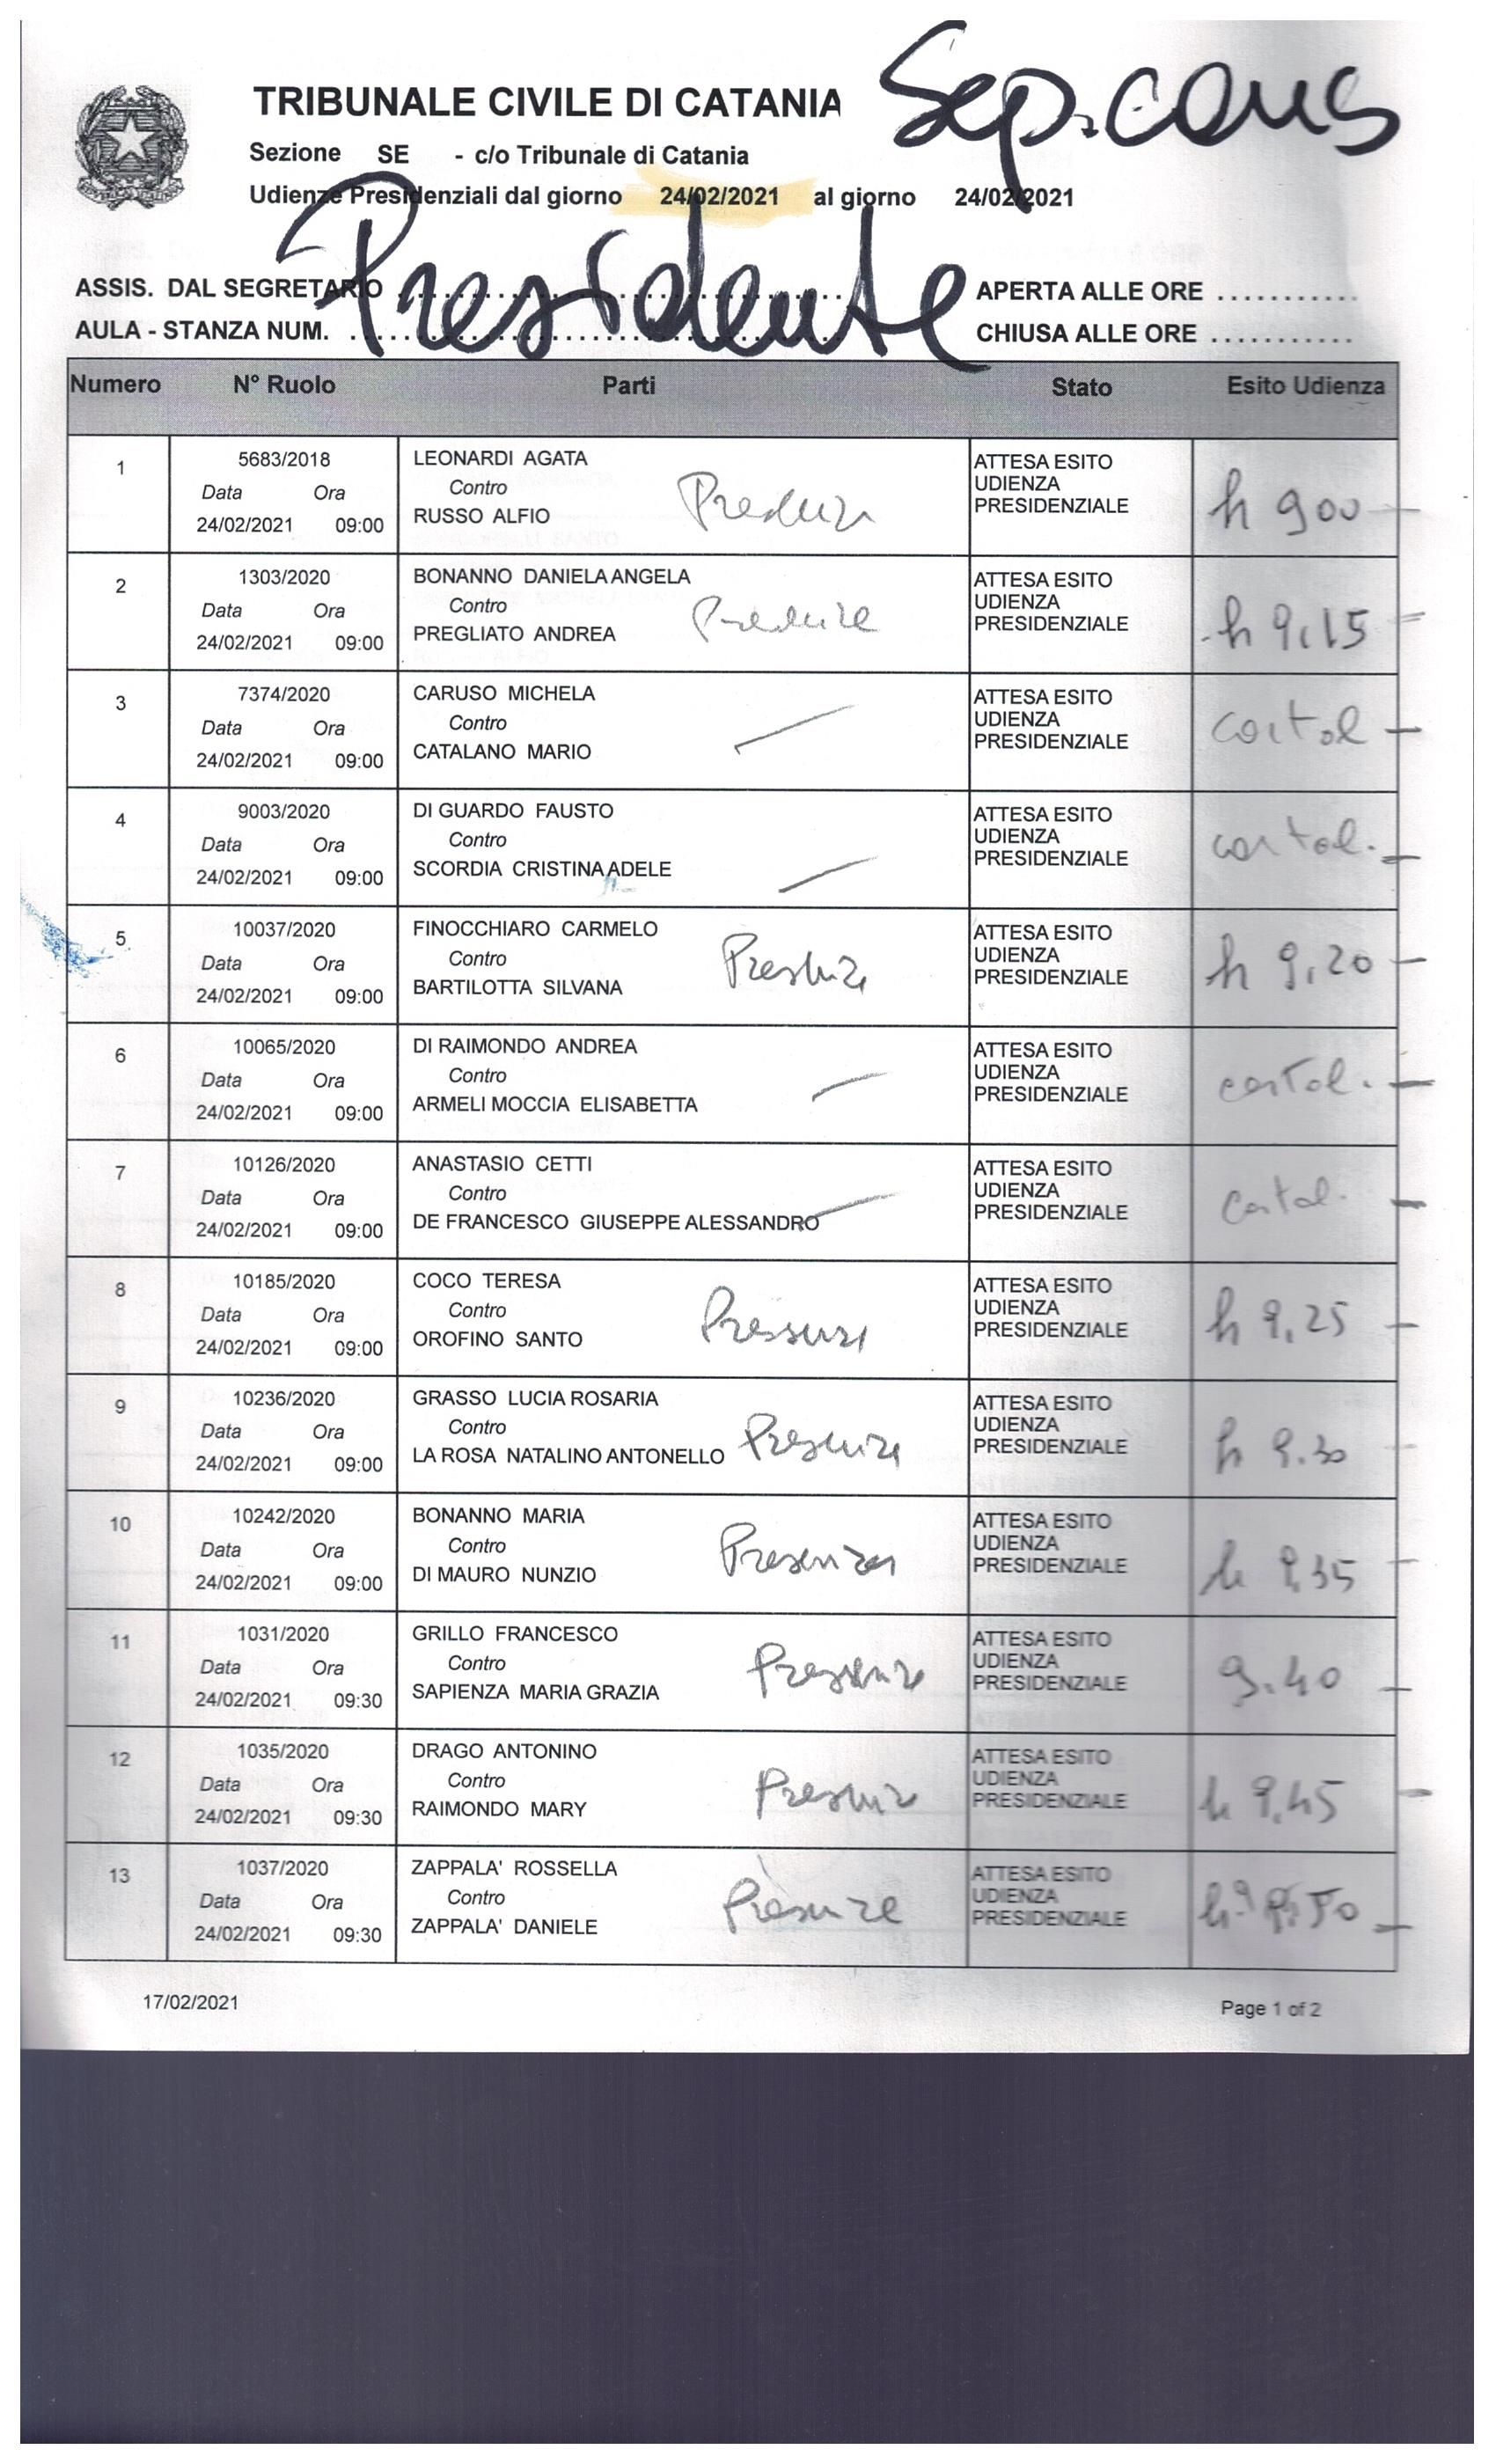 Sep. cons
TRIBUNALE CIVILE DI CATANIA
Sezione SE - c/o Tribunale di Catania
Udienze Presidenziali dal giorno 24/02/2021 al giorno 24/02/2021
Presidente
ASSIS. DAL SEGRETARIO .......... APERTA ALLE ORE ...........
AULA - STANZA NUM. .......... CHIUSA ALLE ORE ...........
Numero N° Ruolo Parti Stato Esito Udienza
1 5683/2018 LEONARDI AGATA ATTESA ESITO
Data Ora Contro UDIENZA
24/02/2021 09:00 RUSSO ALFIO PRESIDENZIALE h 900
2 1303/2020 BONANNO DANIELA ANGELA ATTESA ESITO
Data Ora Contro UDIENZA
24/02/2021 09:00 PREGLIATO ANDREA PRESIDENZIALE h 9,15
3 7374/2020 CARUSO MICHELA ATTESA ESITO
Data Ora Contro UDIENZA
24/02/2021 09:00 CATALANO MARIO PRESIDENZIALE cartol
4 9003/2020 DI GUARDO FAUSTO ATTESA ESITO
Data Ora Contro UDIENZA
24/02/2021 09:00 SCORDIA CRISTINA ADELE PRESIDENZIALE cartol.
5 10037/2020 FINOCCHIARO CARMELO ATTESA ESITO
Data Ora Contro UDIENZA
24/02/2021 09:00 BARTILOTTA SILVANA PRESIDENZIALE h 9,20
6 10065/2020 DI RAIMONDO ANDREA ATTESA ESITO
Data Ora Contro UDIENZA
24/02/2021 09:00 ARMELI MOCCIA ELISABETTA PRESIDENZIALE cartol.
7 10126/2020 ANASTASIO CETTI ATTESA ESITO
Data Ora Contro UDIENZA
24/02/2021 09:00 DE FRANCESCO GIUSEPPE ALESSANDRO PRESIDENZIALE cartol.
8 10185/2020 COCO TERESA ATTESA ESITO
Data Ora Contro UDIENZA
24/02/2021 09:00 OROFINO SANTO PRESIDENZIALE h 9,25
9 10236/2020 GRASSO LUCIA ROSARIA ATTESA ESITO
Data Ora Contro UDIENZA
24/02/2021 09:00 LA ROSA NATALINO ANTONELLO PRESIDENZIALE h 9.30
10 10242/2020 BONANNO MARIA ATTESA ESITO
Data Ora Contro Presenza UDIENZA
24/02/2021 09:00 DI MAURO NUNZIO PRESIDENZIALE h 9,35
11 1031/2020 GRILLO FRANCESCO ATTESA ESITO
Data Ora Contro UDIENZA
24/02/2021 09:30 SAPIENZA MARIA GRAZIA PRESIDENZIALE 9.40
12 1035/2020 DRAGO ANTONINO ATTESA ESITO
Data Ora Contro UDIENZA
24/02/2021 09:30 RAIMONDO MARY PRESIDENZIALE h 9,45
13 1037/2020 ZAPPALA' ROSSELLA ATTESA ESITO
Data Ora Contro UDIENZA
24/02/2021 09:30 ZAPPALA' DANIELE PRESIDENZIALE
17/02/2021 Page 1 of 2